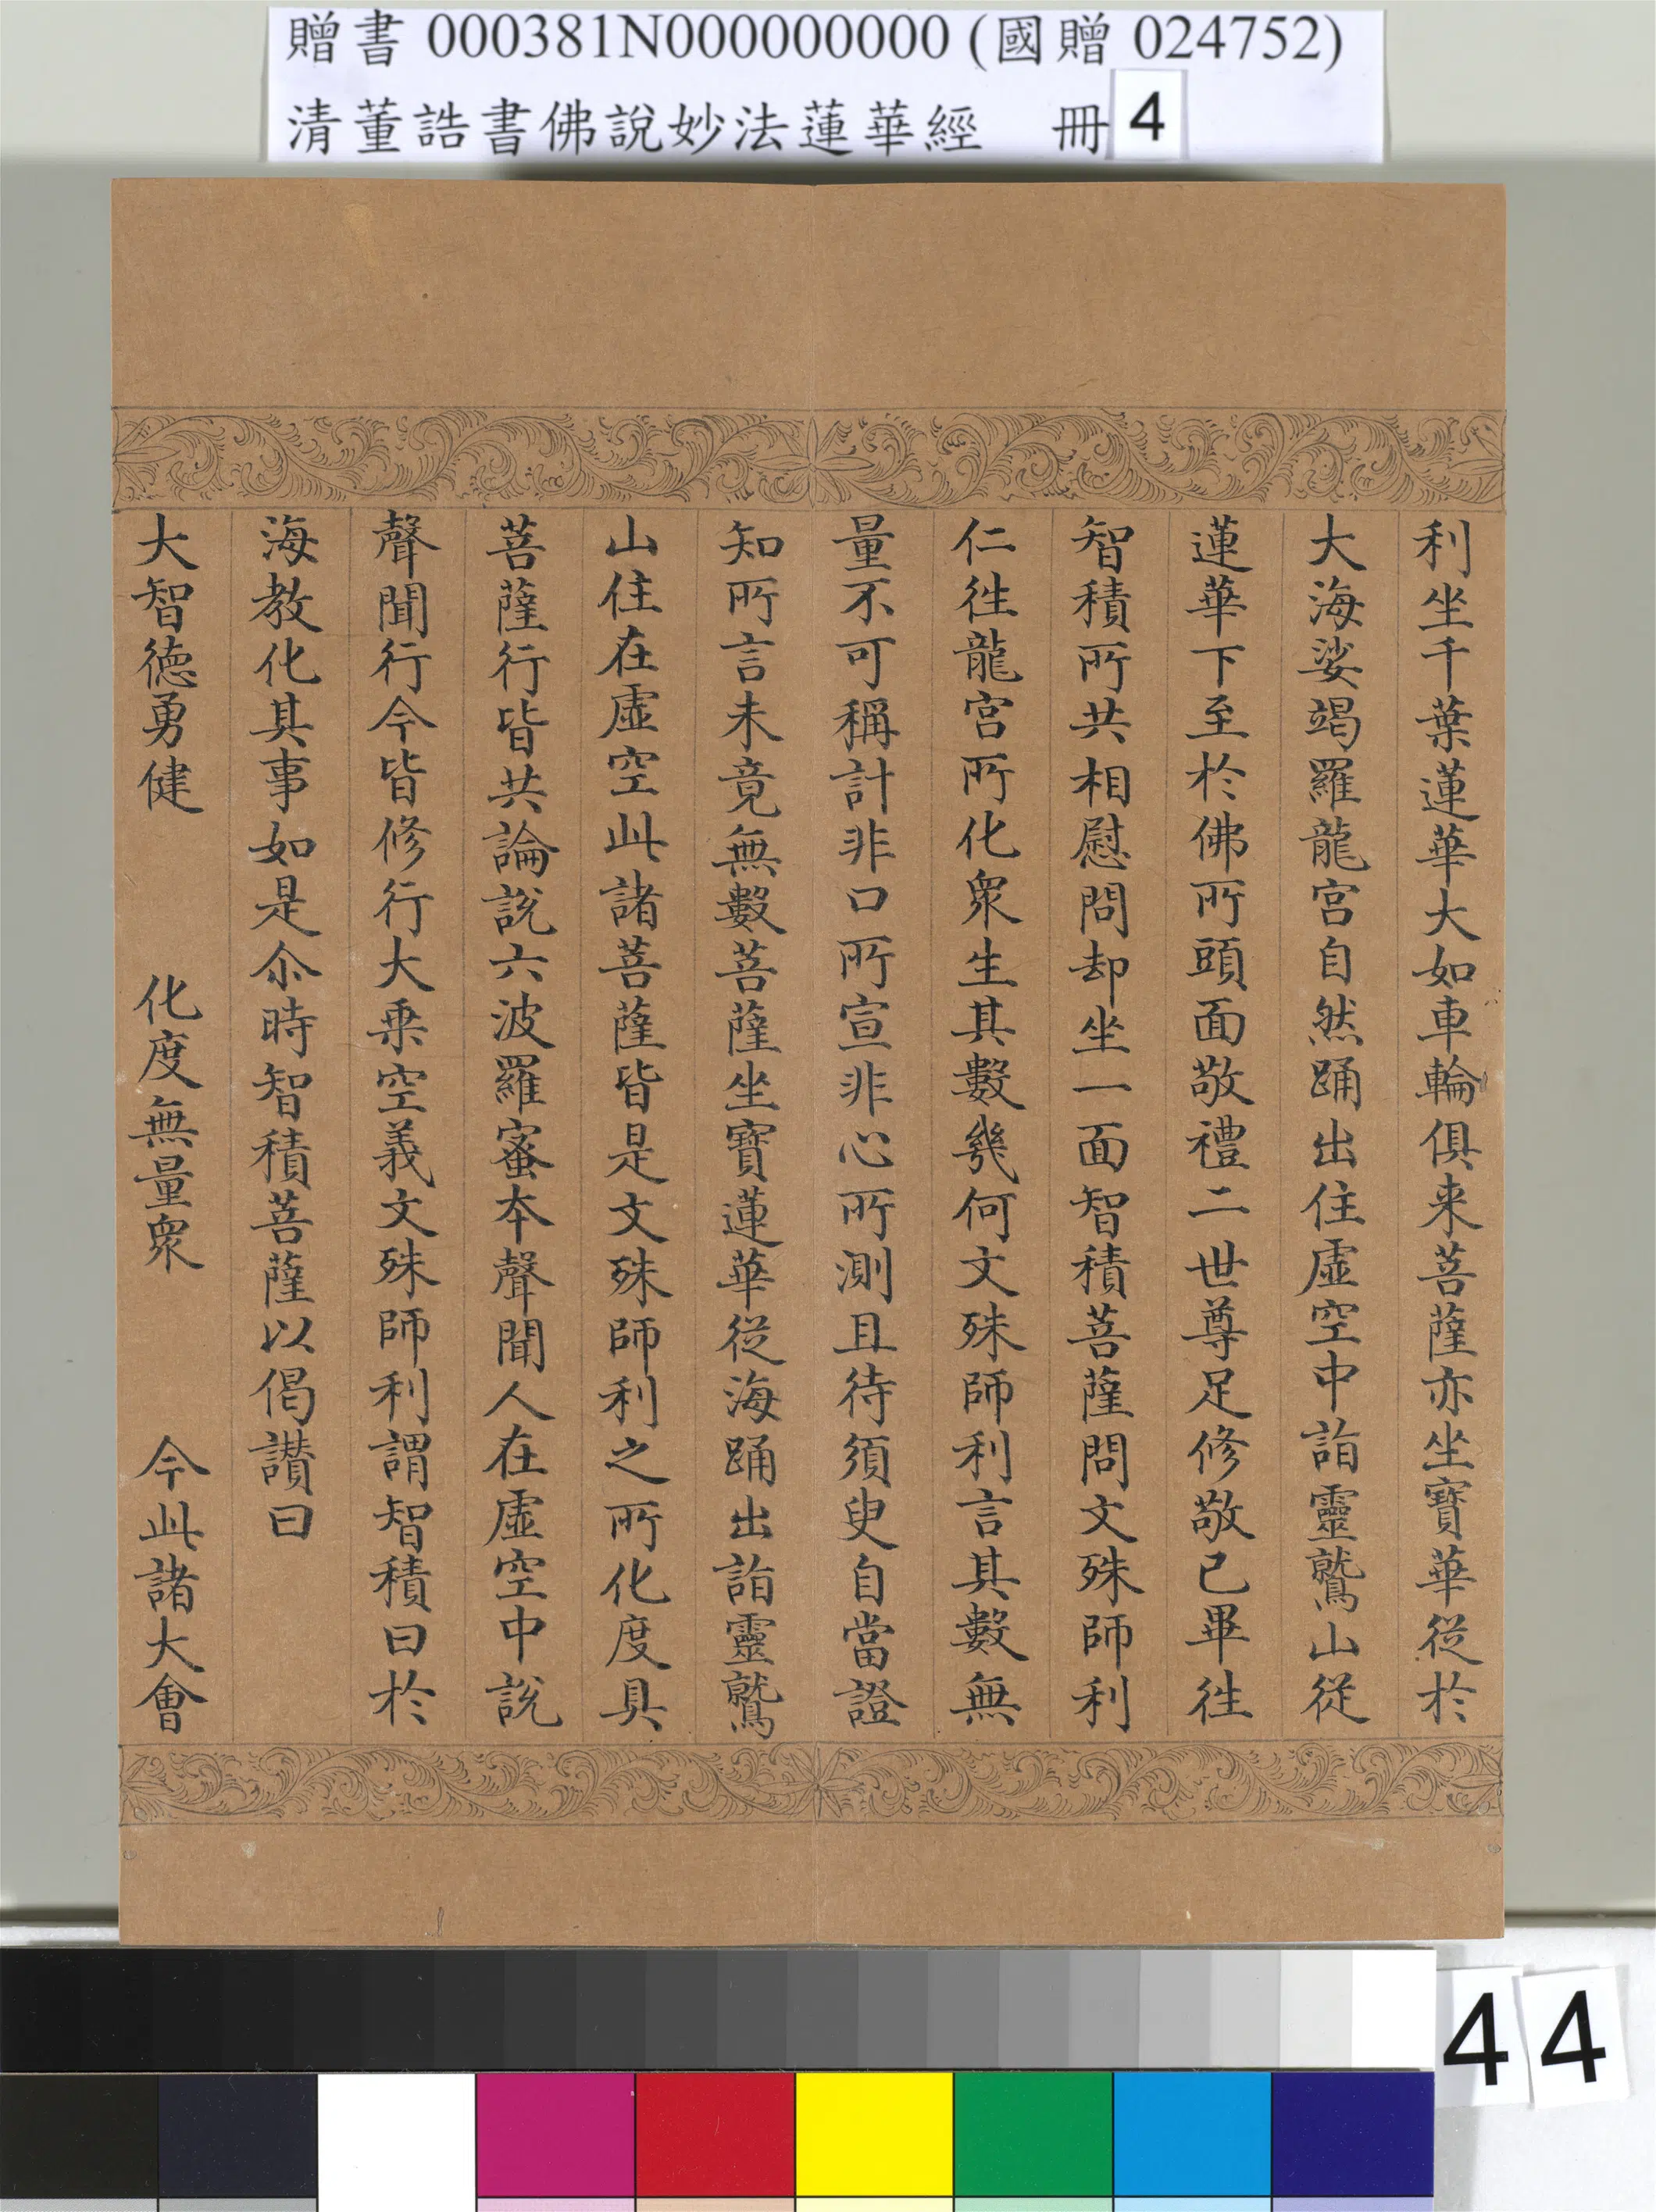 贈書 000381N000000000 (國贈 024752)
清董誥書佛說妙法蓮華經 冊 4
利坐千葉蓮華大如車輪俱来菩薩亦坐寶華從於
大海娑竭羅龍宮自然踊出住虛空中詣靈鷲山從
蓮華下至於佛所頭面敬禮二世尊足修敬已畢往
智積所共相慰問却坐一面智積菩薩問文殊師利
仁往龍宮所化衆生其數幾何文殊師利言其數無
量不可稱計非口所宣非心所測且待須臾自當證
知所言未竟無數菩薩坐寶蓮華從海踊出詣靈鷲
山住在虛空此諸菩薩皆是文殊師利之所化度具
菩薩行皆共論說六波羅蜜本聲聞人在虛空中說
聲聞行今皆修行大乗空義文殊師利謂智積曰於
海教化其事如是尒時智積菩薩以偈讃曰
大智德勇健 化度無量衆 今此諸大會
44